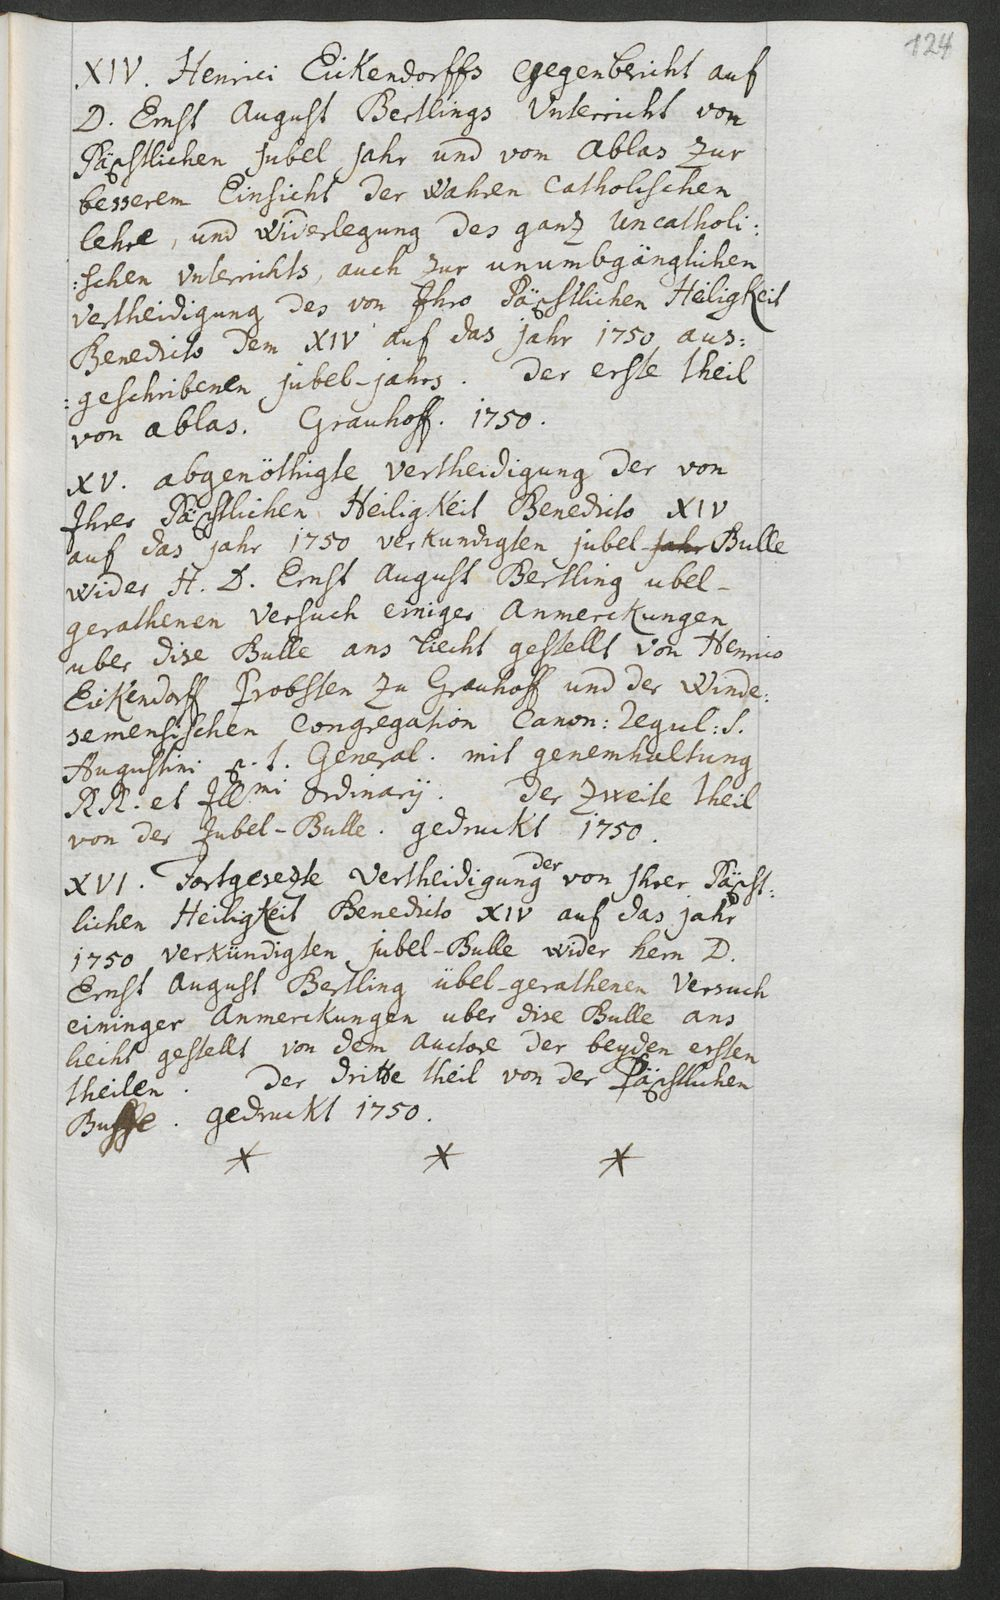 124
XIV. Henrici Eickendorffs gegenbericht auf
D. Ernst August Bertlings Unterricht von
Päpstlichen Jubel Jahr und vom Ablas zur
besserem Einsicht der wahren Catholischen
lehre, und widerlegung des ganz Uncatholi:
:schen Unterrichts, auch zur unumbgänglichen
vertheidigung des von Ihro Päpstlichen Heiligkeit
Benedicto dem XIV auf das jahr 1750 aus:
:geschribenen jubel-jahrs. Der erste theil
von ablas. Grauhoff. 1750.
XV. abgenöthigte vertheidigung der von
Ihrer Päpstlichen Heiligkeit Benedicto XIV
auf das jahr 1750 verkundigten jubel-jahr Bulle
wider H. D. Ernst August Bertling ubel-
gerathenen Versuch einiger Anmerckungen
uber dise Bulle ans liecht gestellt von Henrico
Eickendorff Probsten zu Grauhoff und der Winde:
semensischen Congregation Canon: Regul: S.
Augustini p. t. General. mit genemhaltung
RR. et Illmi Ordinarij. Der zweite theil
von der Jubel-Bulle. gedruckt 1750.
XVI. Fortgesezte Vertheidigung der von Ihrer Päpst:
lichen Heiligkeit Benedicto XIV auf das jahr
1750 verkündigten jubel-Bulle wider hern D.
Ernst August Bertling übel-gerathenen Versuch
eininger Anmerckungen uber dise Bulle ans
liecht gestellt von dem Auctore der beyden ersten
theilen. Der dritte theil von der Päpstlichen
Busse. gedruckt 1750.
* * *